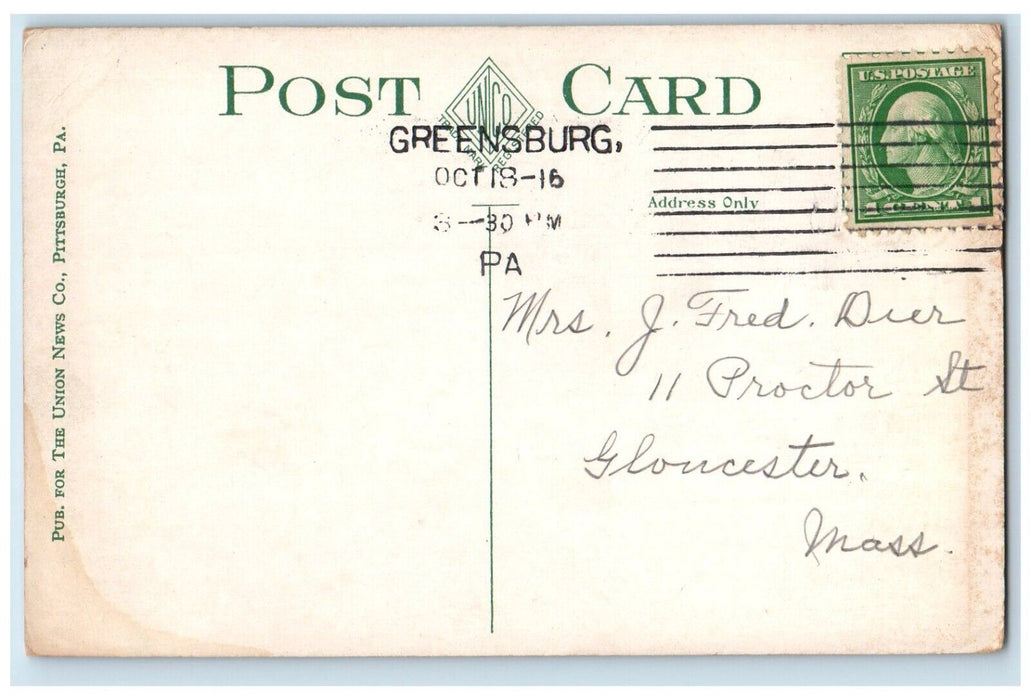 POST CARD
UNICO
TRADE MARK REGISTERED
U.S. POSTAGE
GREENSBURG,
OCT 18-16
3-30 PM
PA
Address Only
Mrs. J. Fred. Dier
11 Proctor St
Gloucester.
Mass.
PUB. FOR THE UNION NEWS CO., PITTSBURGH, PA.